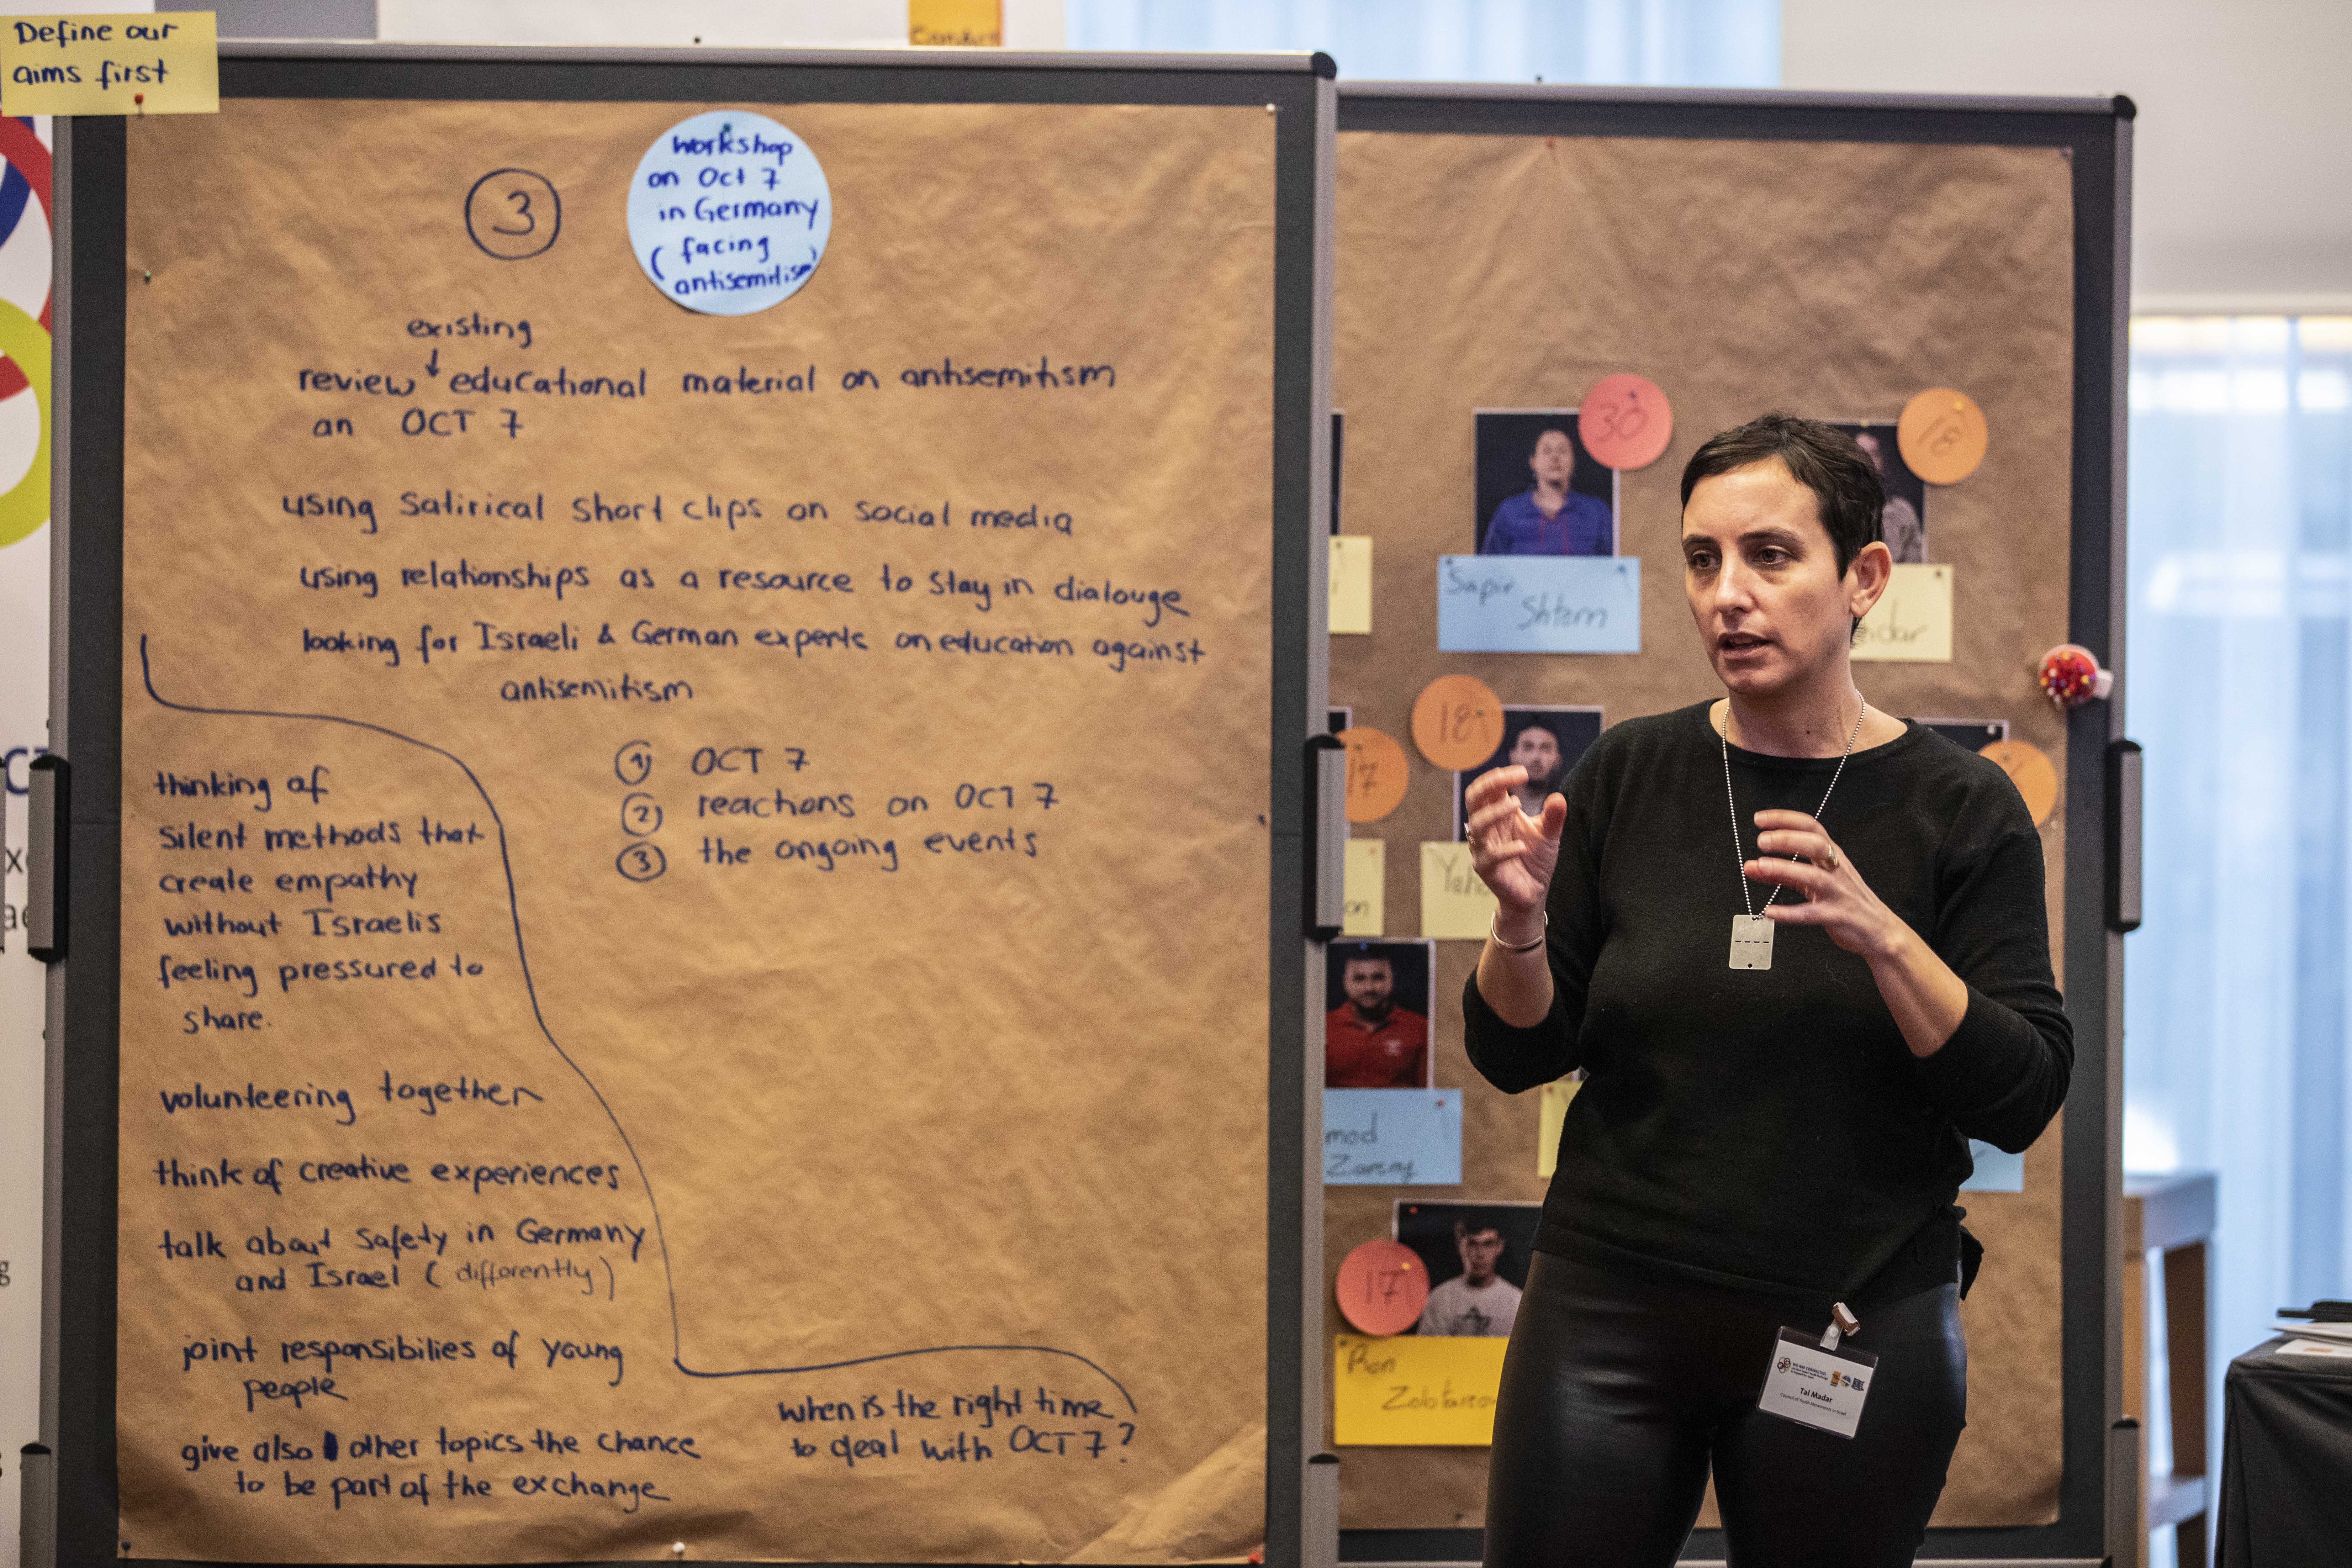 Define our
aims first
3
workshop
on Oct 7
in Germany
(facing
antisemitism)
existing
review ↓ educational material on antisemitism
an OCT 7
using satirical short clips on social media
using relationships as a resource to stay in dialouge
looking for Israeli & German experts on education against
antisemitism
① OCT 7
② reactions on OCT 7
③ the ongoing events
thinking of
silent methods that
create empathy
without Israelis
feeling pressured to
share.
volunteering together
think of creative experiences
talk about safety in Germany
and Israel (differently)
joint responsibilies of young
people
give also other topics the chance
to be part of the exchange
when is the right time
to deal with OCT 7?
30
18
Sapir
Shtern
18
17
on
mod
17
Ron
WE ARE CONNECTED
Tal Madar
Council of Youth Movements in Israel